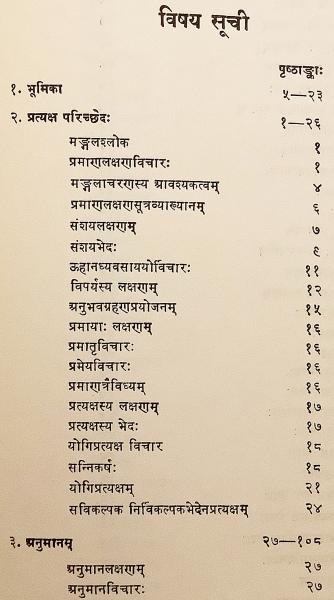 विषय सूची
पृष्ठाङ्काः
१. भूमिका ५—२३
२. प्रत्यक्ष परिच्छेदः १—२६
मङ्गलश्लोक १
प्रमाणलक्षणविचारः १
मङ्गलाचरणस्य आवश्यकत्वम् ४
प्रमाणलक्षणसूत्रव्याख्यानम् ६
संशयलक्षणम् ७
संशयभेदः ९
ऊहानध्यवसाययोर्विचारः ११
विपर्यस्य लक्षणम् १२
अनुभवग्रहणप्रयोजनम् १५
प्रमायाः लक्षणम् १६
प्रमातृविचारः १६
प्रमेयविचारः १६
प्रमाणत्रैविध्यम् १६
प्रत्यक्षस्य लक्षणम् १७
प्रत्यक्षस्य भेदः १७
योगिप्रत्यक्ष विचार १८
सन्निकर्षः १८
योगिप्रत्यक्षम् २१
सविकल्पक निर्विकल्पकभेदेनप्रत्यक्षम् २४
३. अनुमानम् २७—१०८
अनुमानलक्षणम् २७
अनुमानविचारः २७